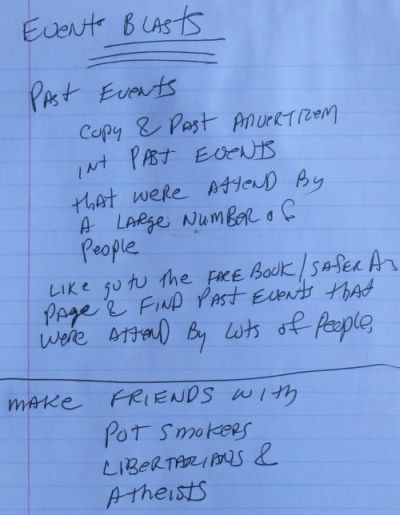 Event Blasts
Past Events
Copy & Past Advertizem
int Past Events
that were Attend By
A Large Number of
People
Like go to the Face Book/Safer Az
Page & Find Past Events that
were Attend By Lots of People,
make Friends with
Pot Smokers
Libertarians &
Atheists